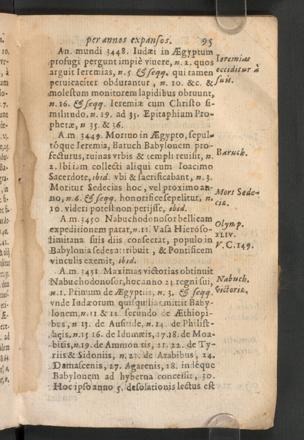 per annos expansos. 95
An. mundi 3448. Iudæi in Ægyptum
profugi pergunt impiè vivere, n. 2. quos
arguit Ieremias, n. 5. & seqq. qui tamen
pervicaciter obdurantur, n. 10. &c. &
molestum monitorem lapidibus obruunt,
n. 16. & seqq. Ieremiæ cum Christo si-
militudo, n. 19. ad 35. Epitaphium Pro-
phetæ, n 35. & 36.
Ieremias
occiditur à
suis.
A m. 3449. Mortuo in Ægypto, sepul-
tóque Ieremia, Baruch Babylonem pro-
fecturus, ruinas vrbis & templi revisit, n.
2. Ibi iam collecti aliqui cum Ioacimo
Sacerdote, ibid. vbi & sacrificabant, n 3.
Moritur Sedecias hoc, vel proximo an-
no, n. 6. & seqq. honorificè sepelitur, n.
10. videri potest non perijsse, ibid.
Baruch.
Mors Sede-
ciæ.
A m. 3450 Nabuchodonosor bellicam
expeditionem patat, n. 11. Vasa Hieroso-
limitana suis diis consecrat, populo in
Babylonia sedes attribuit, & Pontificem
vinculis exemit, ibid.
Olymp.
XLIV.
V. C. 149.
A. m. 3451. Maximas victorias obtinuit
Nabuchodonosor, hoc anno 23. regni sui,
n. 1. Primùm de Ægyptiis, n. 3. & seqq.
vnde Iudæorum quisquilias mittit Baby-
lonem, n. 11 & 12. secundo de Æthiopi-
bus, n. 13. de Ausitide, n. 14. de Philist-
hæis, n. 15 16. de Idumæis, 17. 18. de Moa-
bitis, n. 19. de Ammonitis, 21. 22. de Ty-
riis & Sidoniis, n. 21. de Arabibus, 24.
Damascenis, 27. Agarenis, 28. indéque
Babylonem ad hyberna concessit, 30.
Hoc ipso anno 5. desolationis lectus est
Nabuch.
victoria.